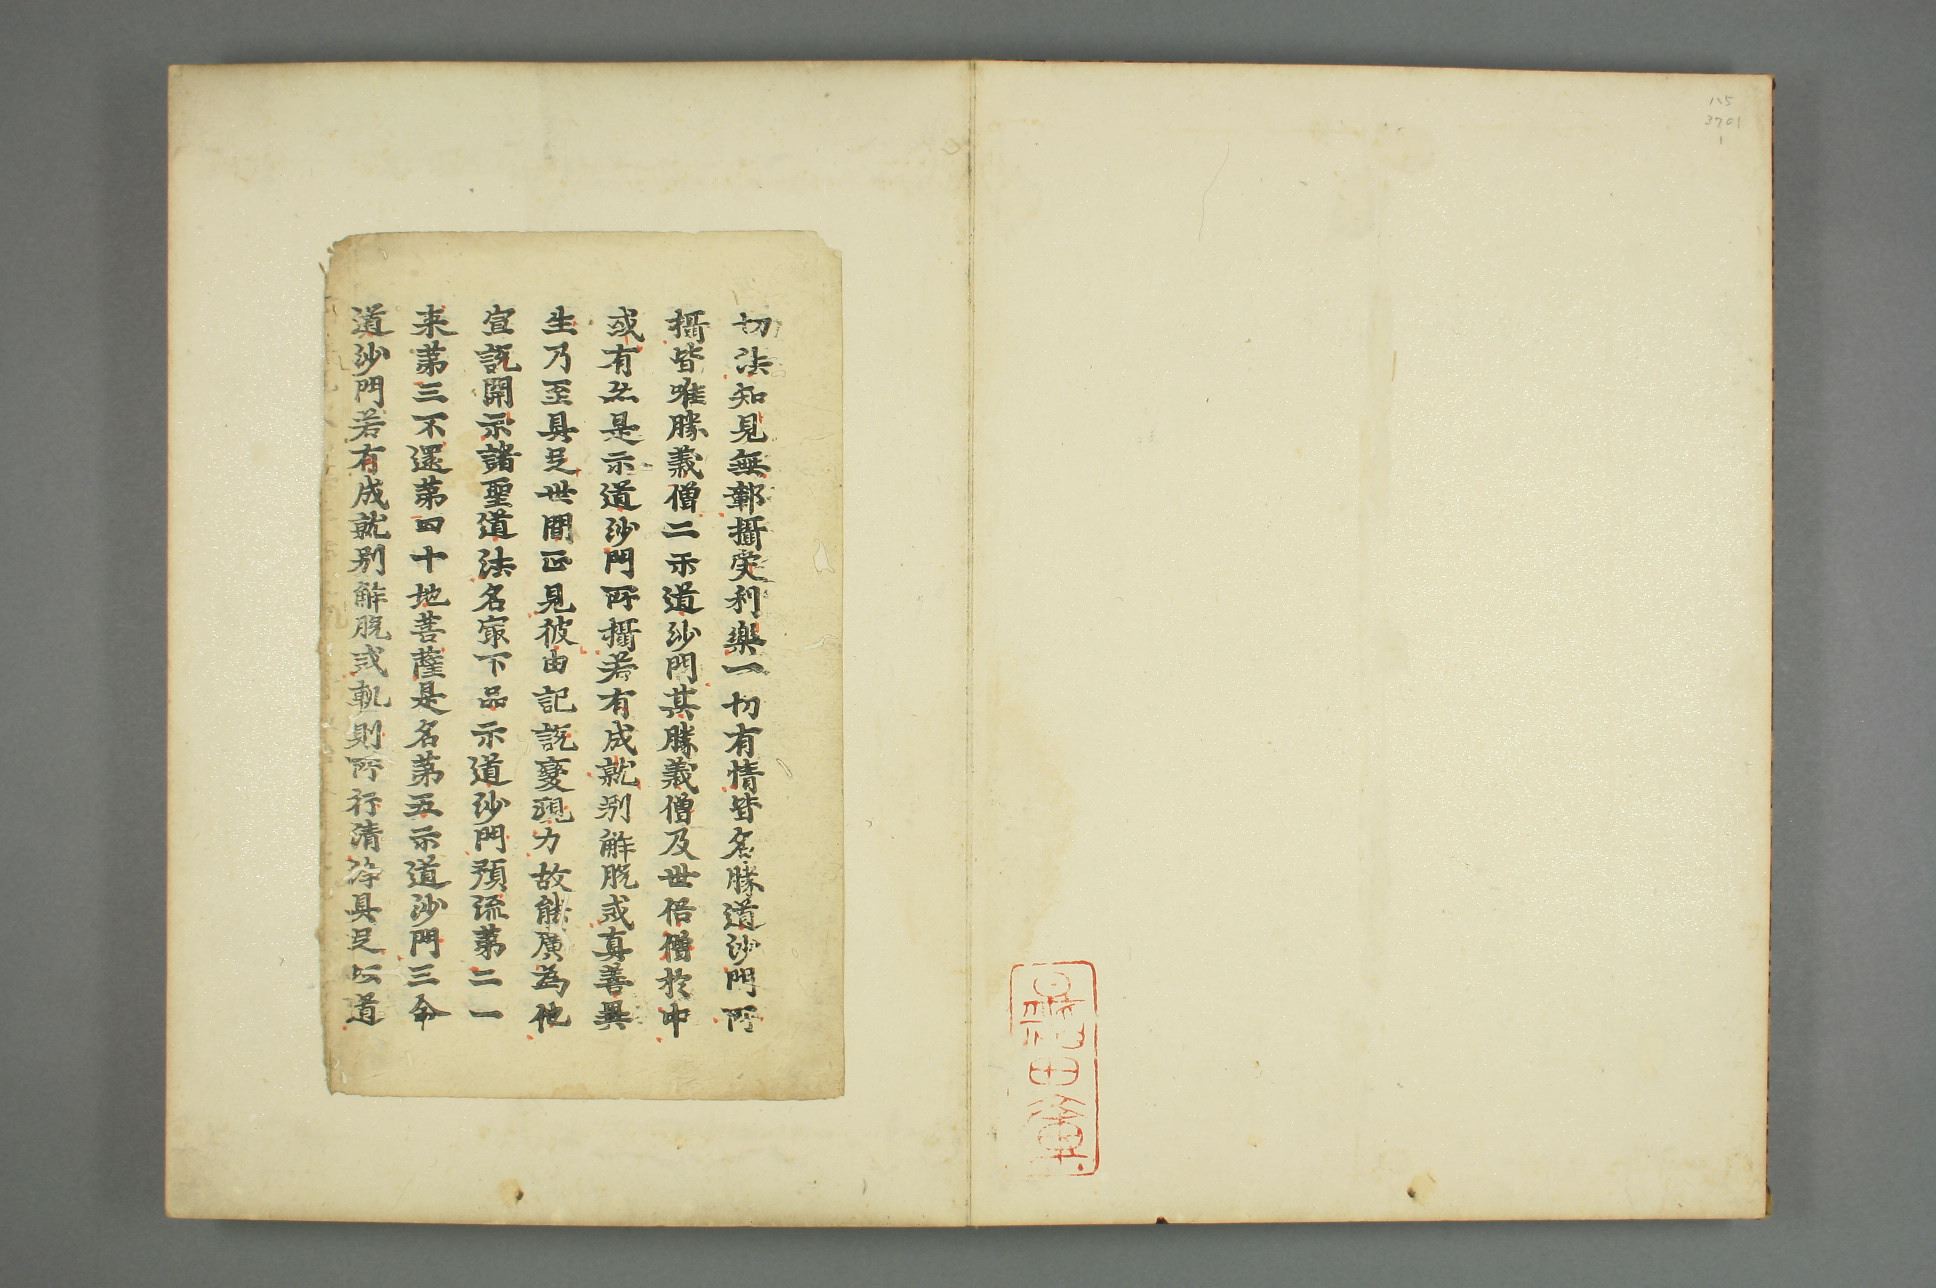 切法知見無鄣攝受利樂一切有情皆名勝道沙門所
攝皆唯勝義僧二示道沙門其勝義僧及世俗僧於中
或有亦是示道沙門所攝若有成就別解脫戒真善異
生乃至具足世間正見彼由記說變現力故能廣為他
宣說開示諸聖道法名冣下品示道沙門預流第二一
来第三不還第四十地菩薩是名第五示道沙門三命
道沙門若有成就别解脫戒軌則所行清淨具足以道
115
3701
1